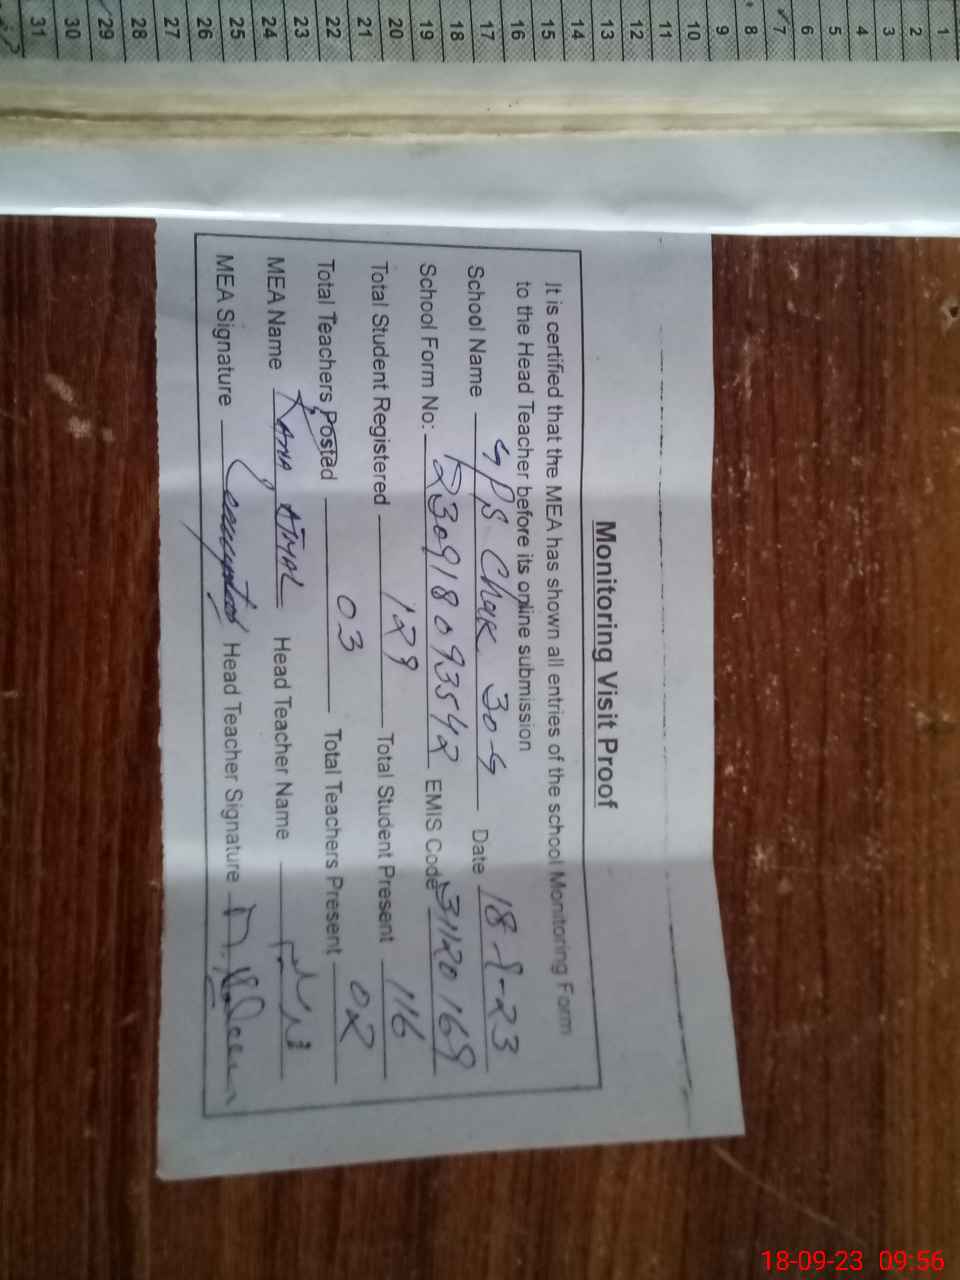 1 2 3 4 5 6 7 8 9 10 11 12 13 14 15 16 17 18 19 20 21 22 23 24 25 26 27 28 29 30 31
Monitoring Visit Proof
It is certified that the MEA has shown all entries of the school Monitoring Form
to the Head Teacher before its online submission
School Name GPS Chak 30-G Date 18-9-23
School Form No: R230918093542 EMIS Code 31120169
Total Student Registered 129 Total Student Present 116
Total Teachers Posted 03 Total Teachers Present 02
MEA Name Rana Ajmal Head Teacher Name
MEA Signature Head Teacher Signature
18-09-23 09:56